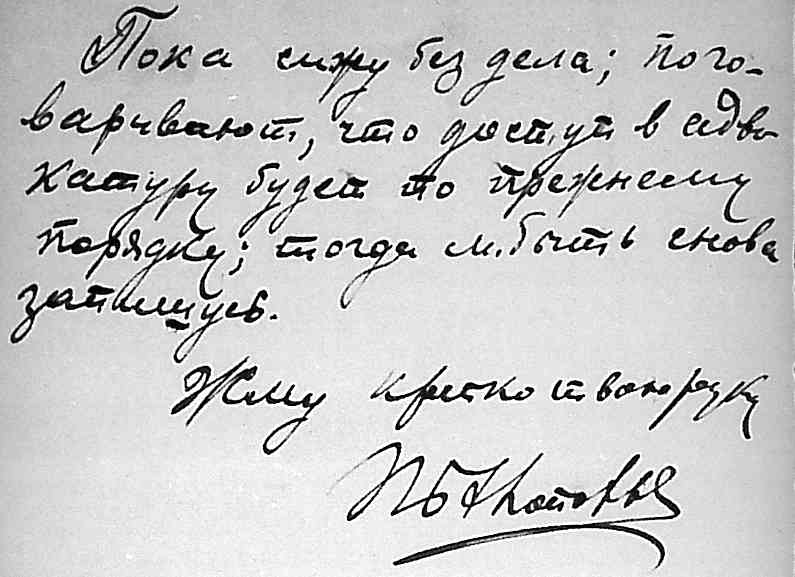 Пока сижу без дела; пого-
варивают, что доступ в адво
катуру будет по прежнему
порядку; тогда м. быть снова
запишусь.
Жму крепко твою руку